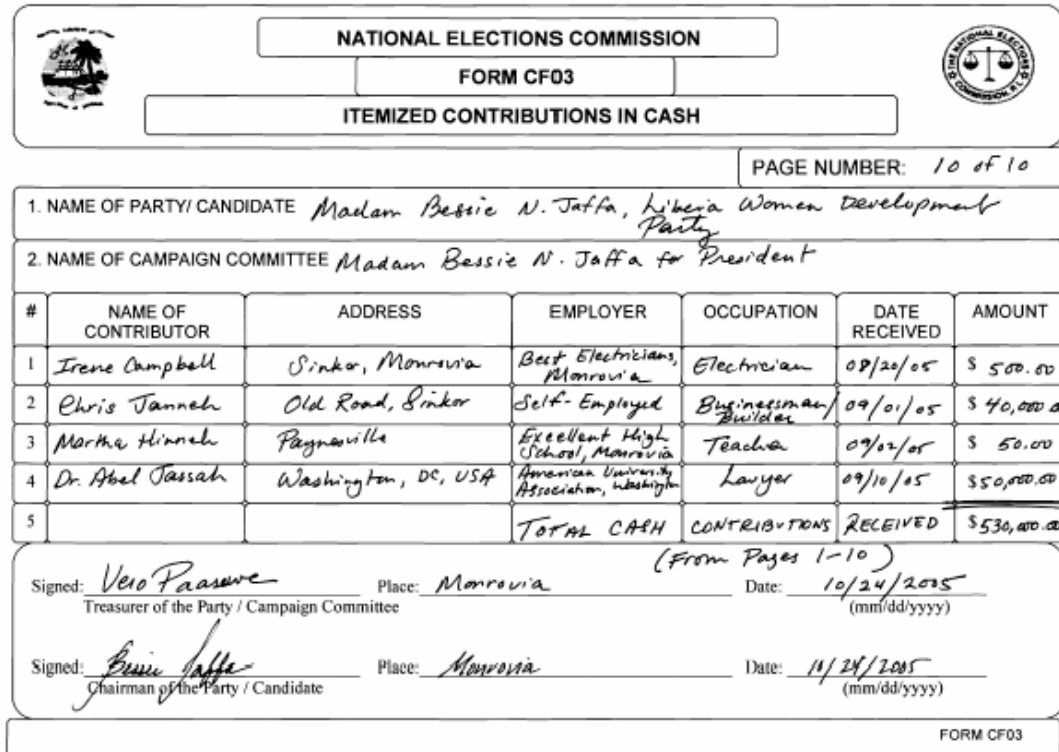 NATIONAL ELECTIONS COMMISSION
FORM CF03
ITEMIZED CONTRIBUTIONS IN CASH
THE NATIONAL ELECTIONS COMMISSION, R.L.
PAGE NUMBER: 10 of 10
1. NAME OF PARTY/ CANDIDATE Madam Bessie N. Jaffa, Liberia Women Development
Party
2. NAME OF CAMPAIGN COMMITTEE Madam Bessie N. Jaffa for President
# NAME OF CONTRIBUTOR ADDRESS EMPLOYER OCCUPATION DATE RECEIVED AMOUNT
1 Irene Campbell Sinkor, Monrovia Best Electricians, Monrovia Electrician 08/20/05 $ 500.00
2 Chris Janneh Old Road, Sinkor Self-Employed Businessman/ Builder 09/01/05 $ 40,000.0
3 Martha Hinneh Paynesville Excellent High School, Monrovia Teacher 09/02/05 $ 50.00
4 Dr. Abel Jassah Washington, DC, USA American University Association, Washington Lawyer 09/10/05 $50,000.00
5 TOTAL CASH CONTRIBUTIONS RECEIVED $530,000.00
(From Pages 1-10)
Signed: Vero Paasewe Place: Monrovia Date: 10/24/2005
Treasurer of the Party / Campaign Committee (mm/dd/yyyy)
Signed: Bessie Jaffa Place: Monrovia Date: 10/24/2005
Chairman of the Party / Candidate (mm/dd/yyyy)
FORM CF03